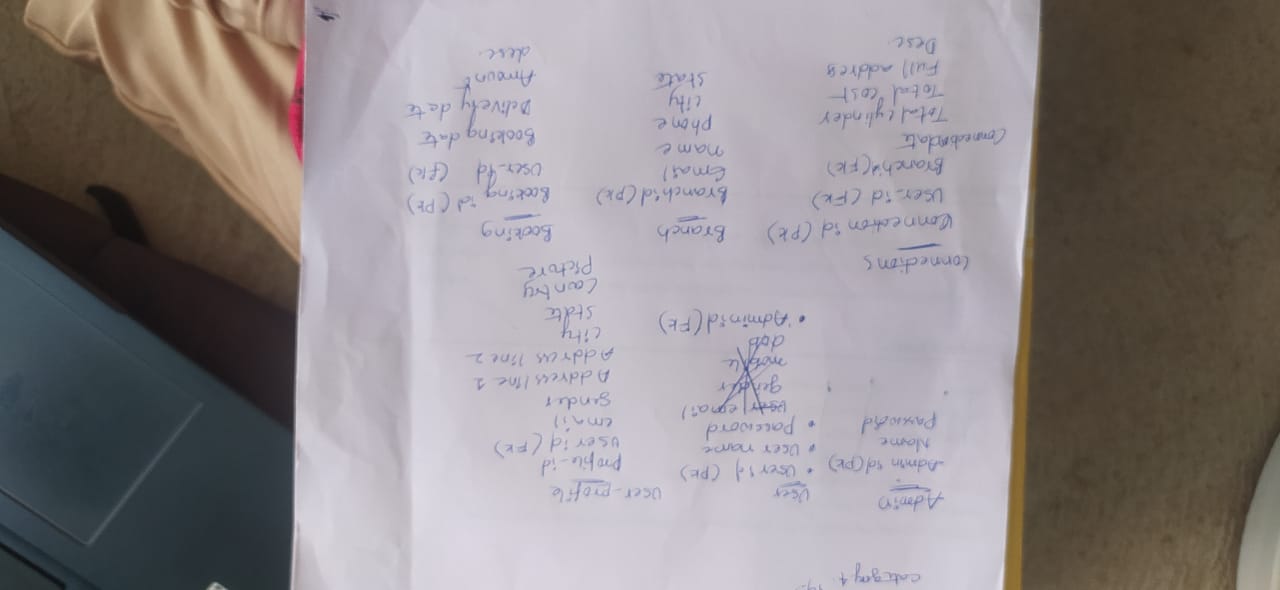 Category 4.
Admin
Admin id (PK)
Name
Password
User
• User id (PK)
• User name
• Password
user email
gender
mobile
dob
• Admin id (FK)
User-profile
Profile-id
User id (FK)
email
gender
Address line 1
Address line 2
city
state
Country
Picture
Connections
Connection id (PK)
User-id (FK)
Branch id (FK)
Connection date
Total cylinder
Total cost
Full address
Desc.
Branch
Branch id (PK)
Email
name
phone
city
state
Booking
Booking id (PK)
User-id (fk)
Booking date
Delivery date
Amount
desc.